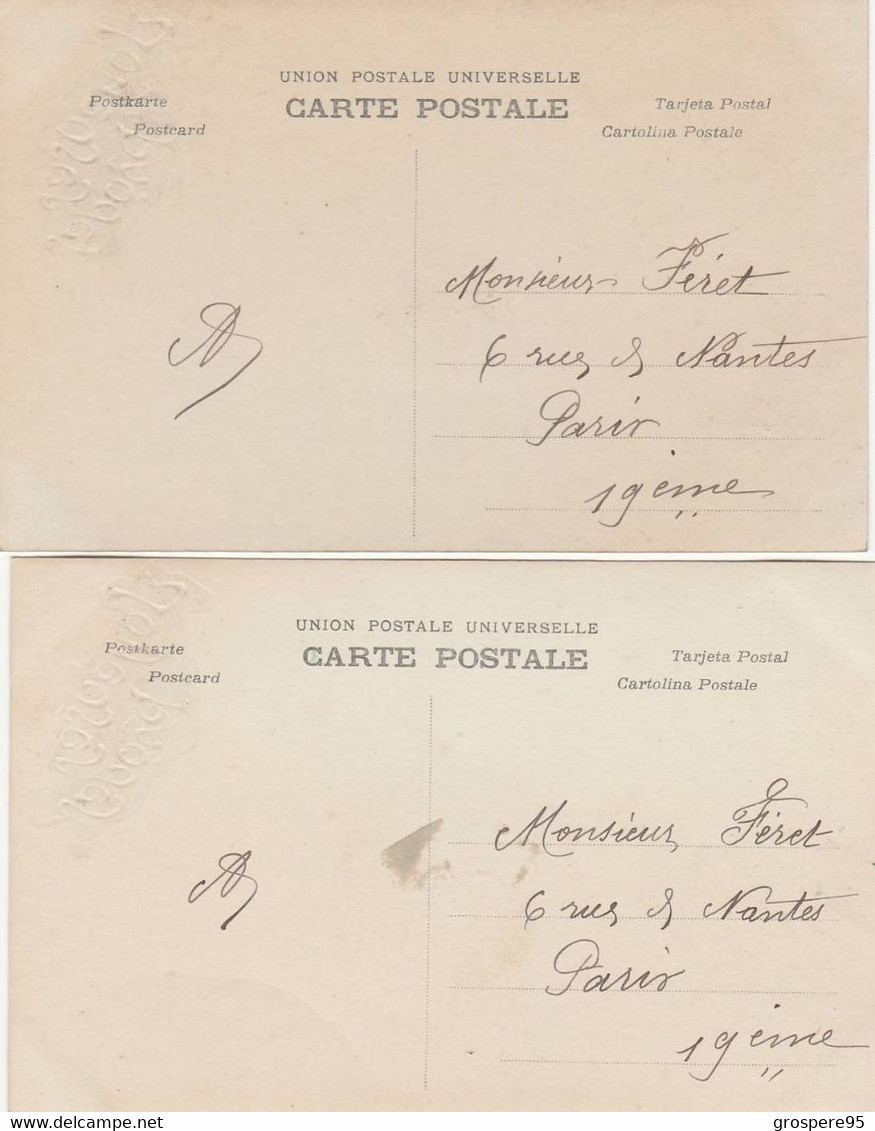 UNION POSTALE UNIVERSELLE
Postkarte CARTE POSTALE Tarjeta Postal
Postcard Cartolina Postale
Monsieur Féret
6 rue de Nantes
Paris
19ème
UNION POSTALE UNIVERSELLE
Postkarte CARTE POSTALE Tarjeta Postal
Postcard Cartolina Postale
Monsieur Féret
6 rue de Nantes
Paris
19ème
delcampe.net
grospere95